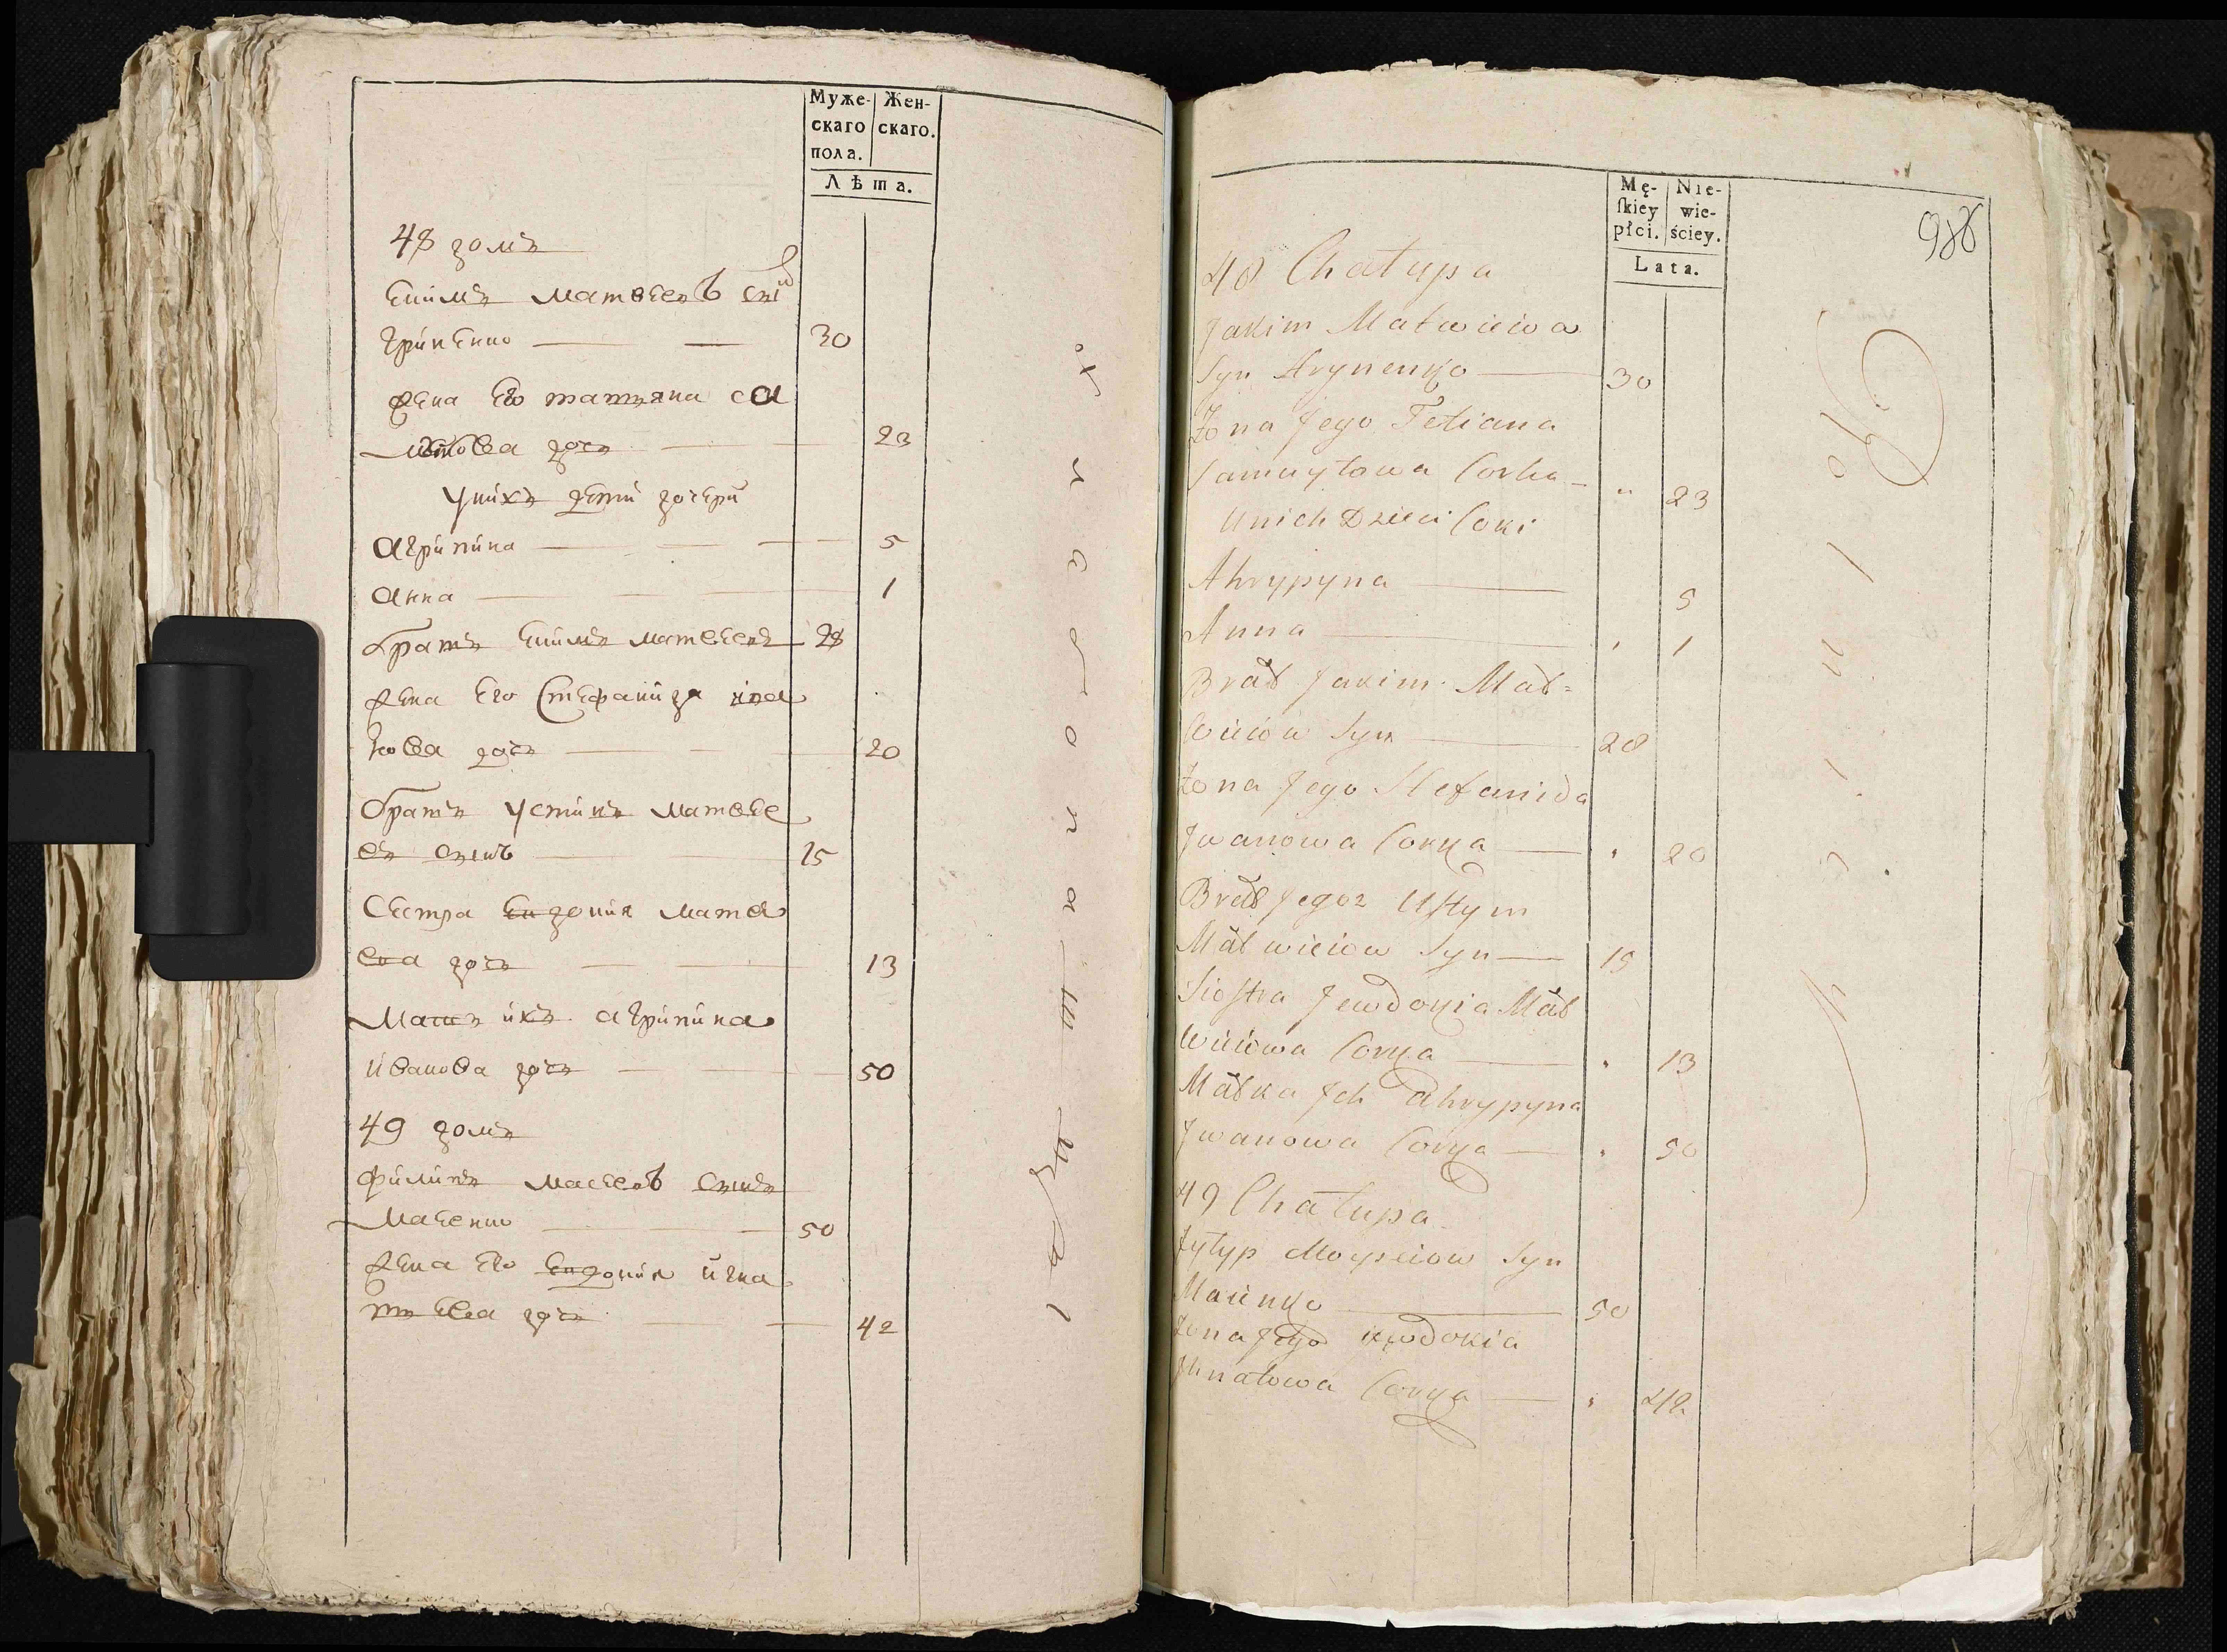 Муже-
скаго
пола.
Жен-
скаго.
Лѣта.
48 домъ
Екимъ матвеевъ снъ
гриненко 30
жена его татьяна са
мойлова дочь 23
у нихъ дети дочери
агрипина 5
анна 1
братъ Екимъ матвеевъ 28
жена его Стефанида ива
нова дочь 20
братъ устинъ матвее
въ сынъ 15
Сестра Евдокия матве
ева дочь 13
Мать ихъ агрипина
иванова дочь 50
49 домъ
филипъ мосеевъ сынъ
маценко 50
жена его Евдокия игна
тьева дочь 42
Mę-
ſkiey
płci.
Nie-
wie-
ściey.
Lata.
988
48 Chatupa
Jakim Matwieiow
Syn Hrynenko 30
Żona Jego Tetiana
Samuytowa Corka " 23
U nich Dzieci Corki
Ahrypyna 5
Anna 1
Brat Jakim Mat=
wieiow Syn 28
Żona Jego Stefanida
Jwanowa Corka 20
Brat Jegoż Ustym
Matwieiow Syn 15
Siostra Jewdokia Mat
wieiowa Corka 13
Matka Jch Ahrypyna
Jwanowa Corka 50
49 Chatupa
Fytyp Moysieiow Syn
Macenko 50
Żona Jego Jewdokia
Jhnatowa Corka 42